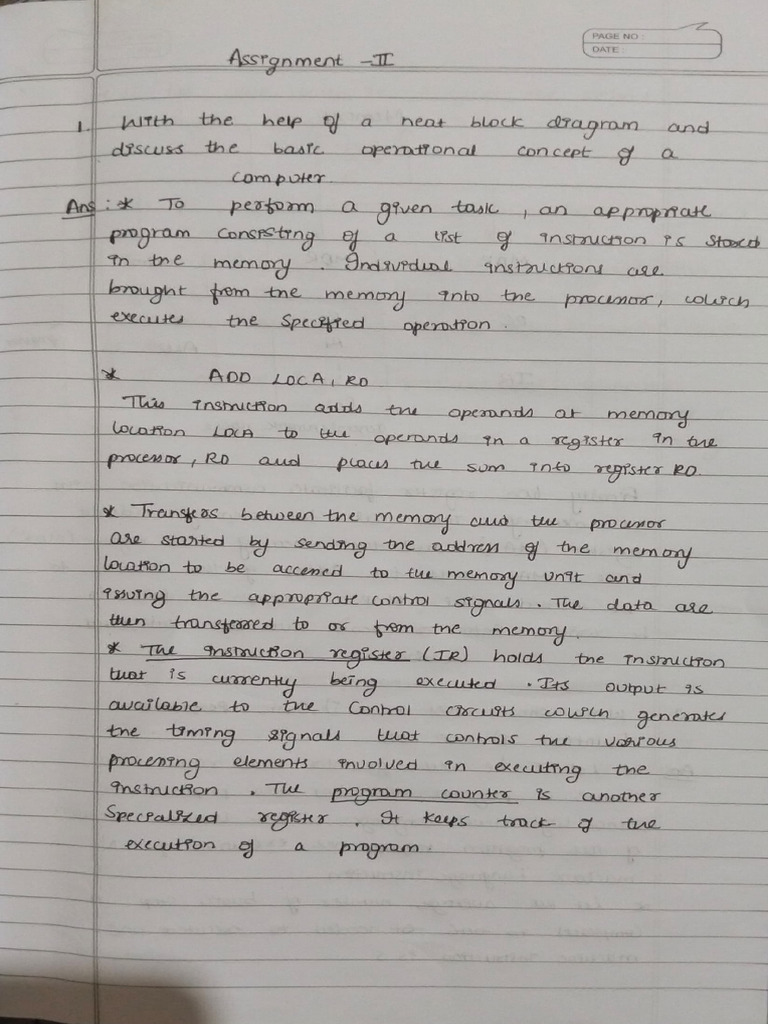 PAGE NO :
DATE :
Assignment - II
1. With the help of a neat block diagram and
discuss the basic operational concept of a
computer.
Ans : * To perform a given task, an appropriate
program consisting of a list of instruction is stored
in the memory. Individual instructions are
brought from the memory into the processor, which
executes the specified operation.
* ADD LOCA, RO
This instruction adds the operands at memory
location LOCA to the operands in a register in the
processor, RO and places the sum into register RO.
* Transfers between the memory and the processor
are started by sending the address of the memory
location to be accessed to the memory unit and
issuing the appropriate control signals. The data are
then transferred to or from the memory.
* The instruction register (IR) holds the instruction
that is currently being executed. Its output is
available to the control circuits which generates
the timing signals that controls the various
processing elements involved in executing the
instruction. The program counter is another
specialized register. It keeps track of the
execution of a program.